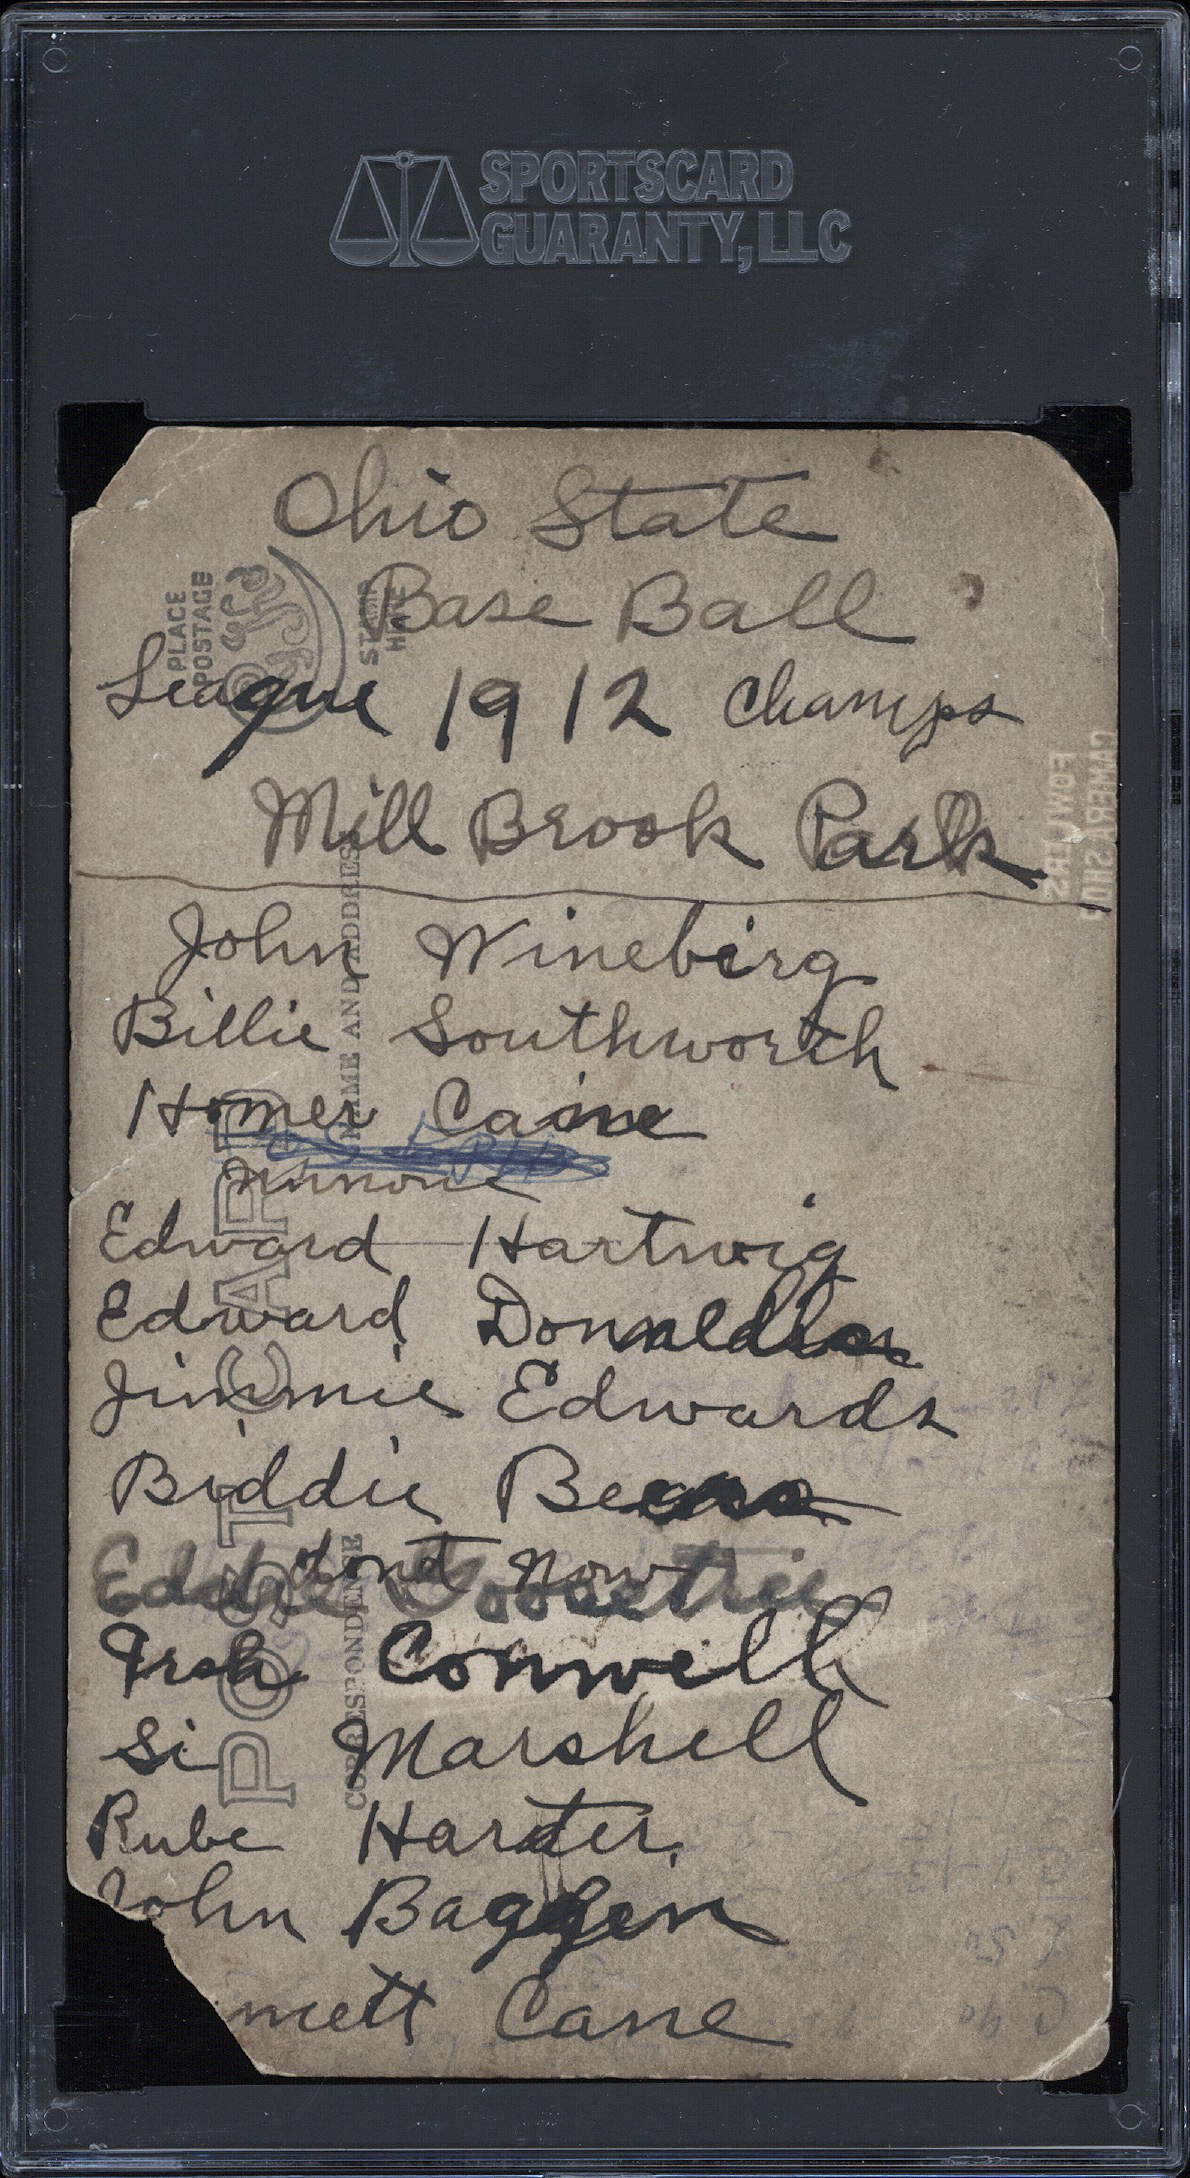 SPORTSCARD
GUARANTY, LLC
Ohio State
Base Ball
League 1912 Champs
Mill Brook Park
John Winebirg
Billie Southworth
Homer Caine
Edward Hartwig
Edward Donaldson
Jimmie Edwards
Biddie Beans
dont now
Eddie
Irsh Conwell
Si Marshell
Rube Harter.
John Baggen
mett Cane
PLACE
POSTAGE
STAMP
HERE
NAME AND ADDRESS
POST CARD
CORRESPONDENCE
FOWLERS
CAMERA SHOP